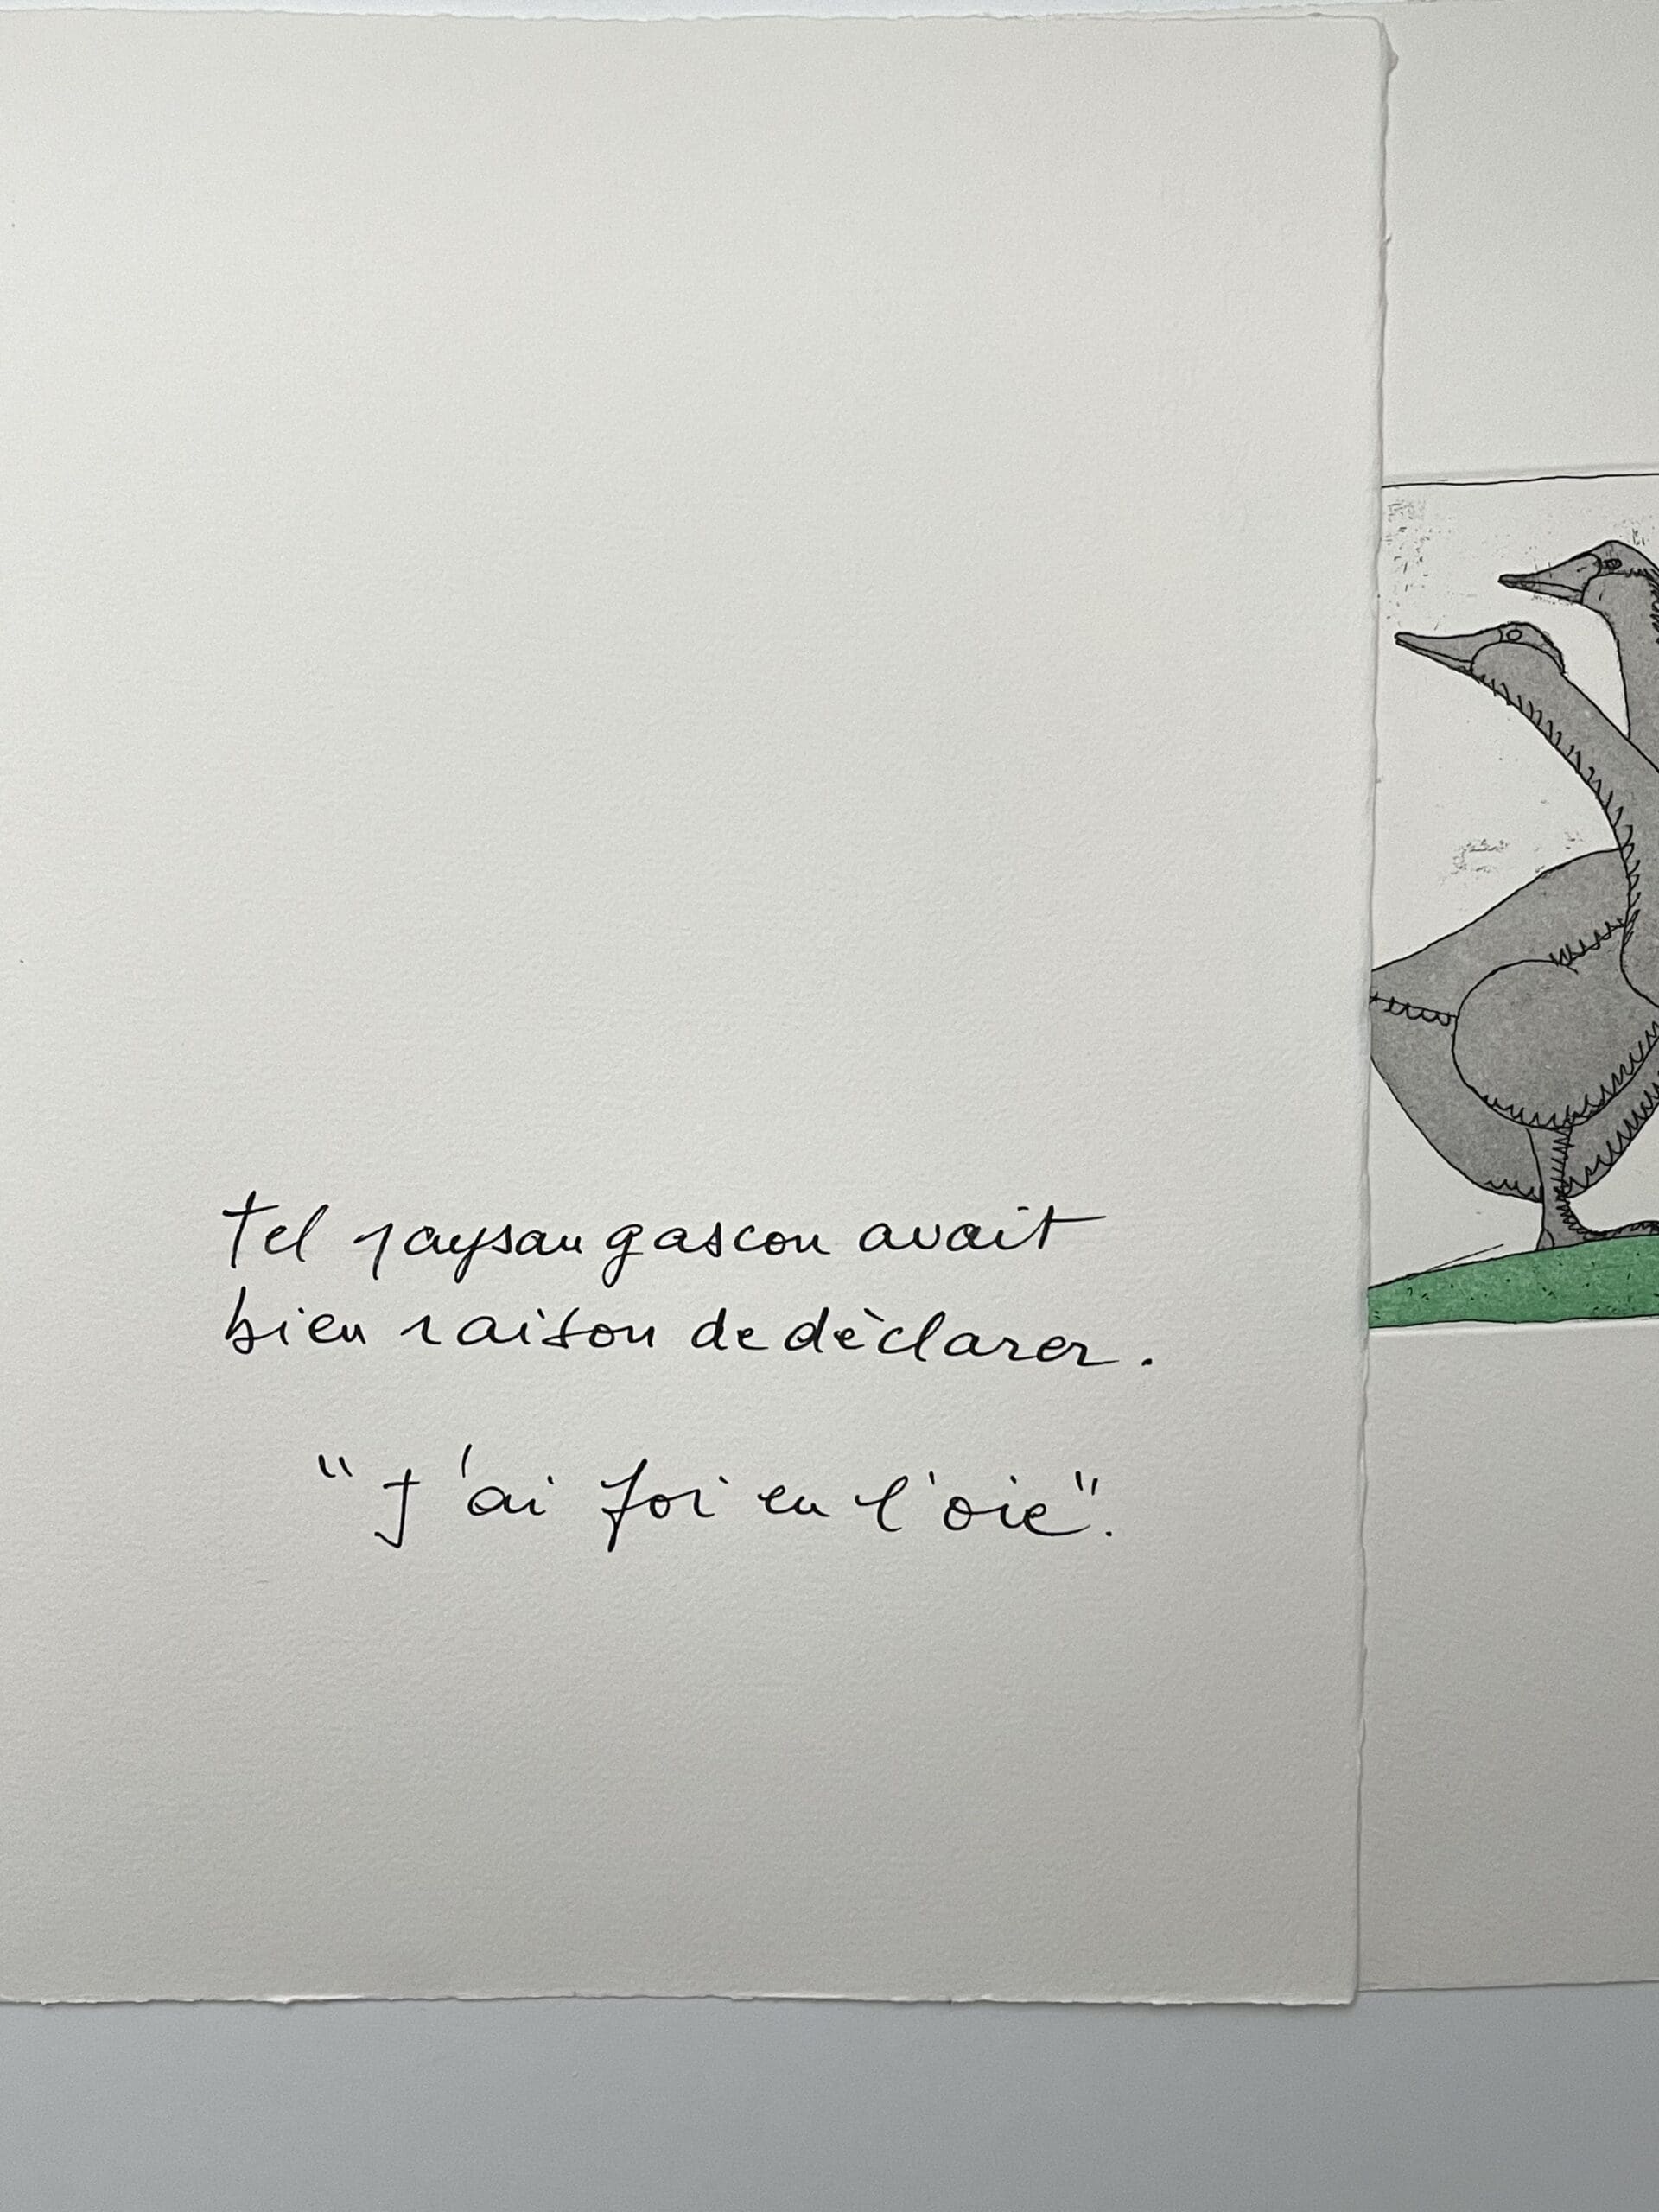 tel paysan gascon avait
bien raison de dèclarer.
"J'ai foi en l'oie".